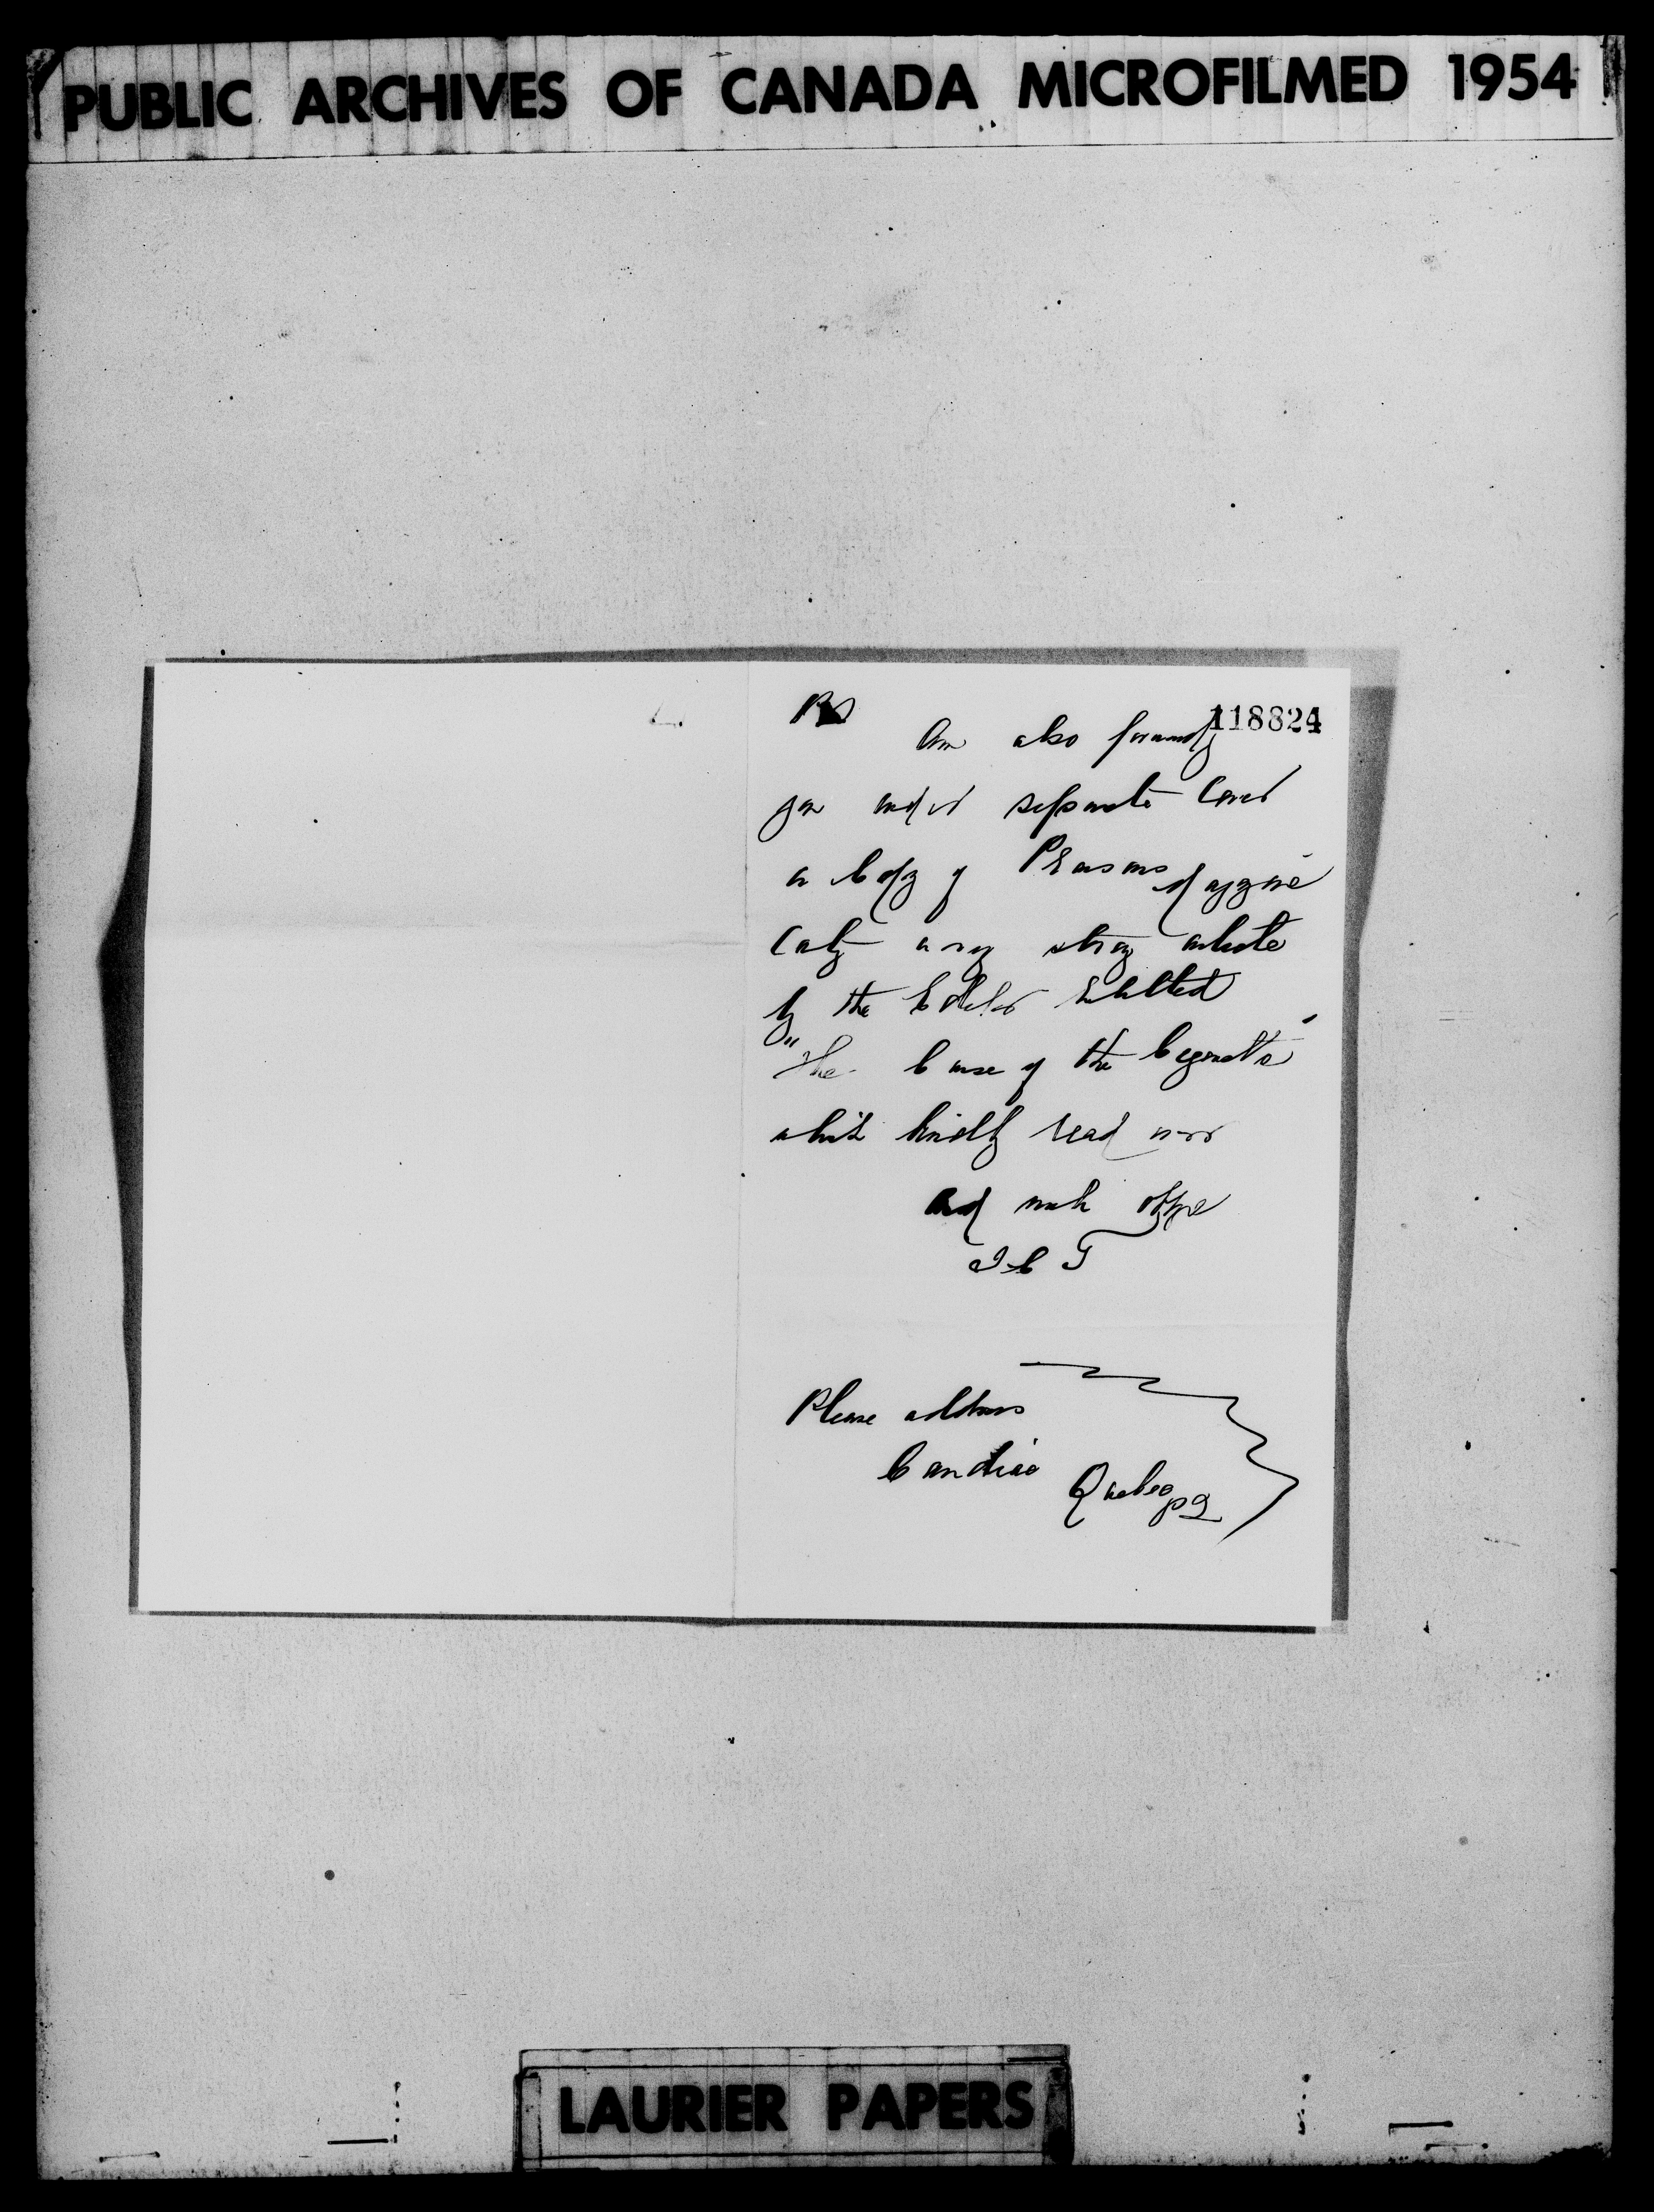 PUBLIC ARCHIVES OF CANADA MICROFILMED 1954
118824
PS
Am also forwardg
you under separate Cover
a Copy of Pearsons Magazine
by the Editor Entitled
"The Curse of the Cigarette"
which kindly read over
and much oblige
Please address
Candiac Quebec PQ
LAURIER PAPERS